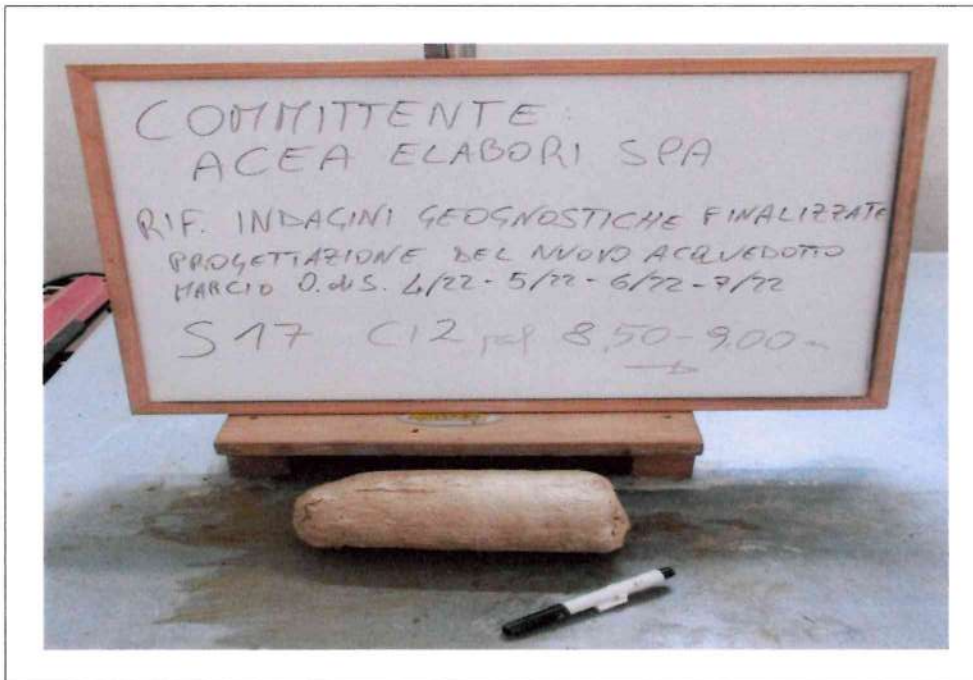 COMMITTENTE
ACEA ELABORI SPA
RIF. INDAGINI GEOGNOSTICHE FINALIZZATE
PROGETTAZIONE DEL NUOVO ACQUEDOTTO
MARCIO O.diS. 4/22 - 5/22 - 6/22 - 7/22
S17 CI2 8,50-9,00 m